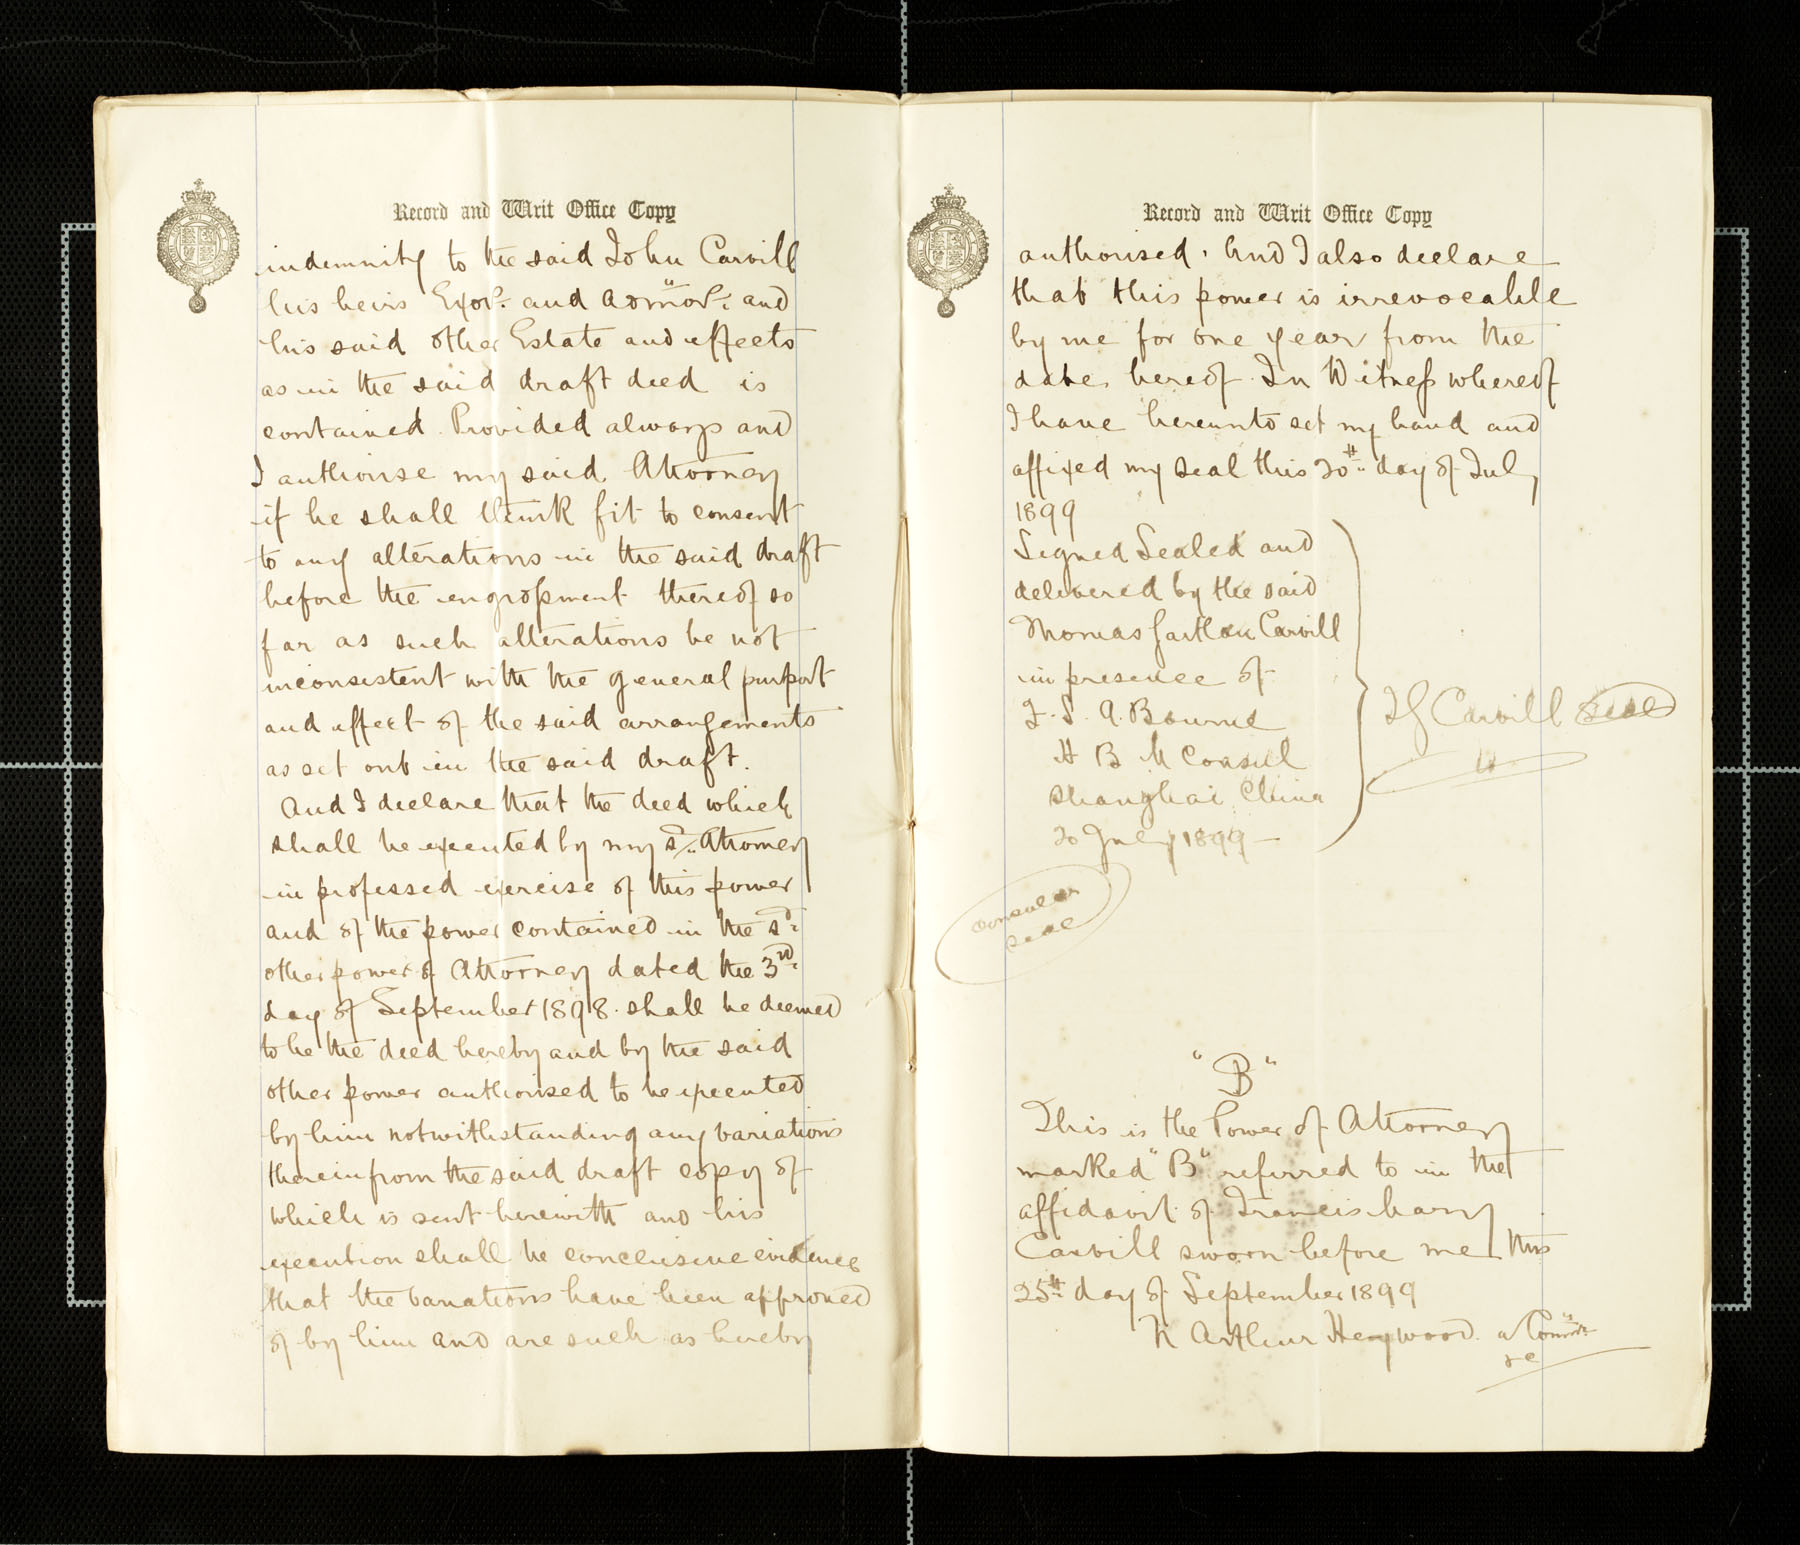 Record and Writ Office Copy
indemnity to the said John Carvill
his heirs Exors. and admors. and
his said other Estate and effects
as in the said draft deed is
contained. Provided always and
I authorise my said Attorney
if he shall think fit to consent
to any alterations in the said draft
before the engrossment thereof so
far as such alterations be not
inconsistent with the general purport
and effect of the said arrangements
as set out in the said draft.
And I declare that the deed which
shall be executed by my sd. Attorney
in professed exercise of this power
and of the power contained in the sd.
other power of Attorney dated the 3rd.
day of September 1898. shall be deemed
to be the deed hereby and by the said
other power authorised to be executed
by him notwithstanding any variations
therein from the said draft copy of
which is sent herewith and his
execution shall be conclusive evidence
that the variations have been approved
of by him and are such as hereby
Record and Writ Office Copy
authorised. And I also declare
that this power is irrevocable
by me for one year from the
date hereof. In Witness whereof
I have hereunto set my hand and
affixed my seal this 20th. day of July
1899
Signed Sealed and
delivered by the said
Thomas Gartlan Carvill
in presence of
F. S. A. Bourne
H B M Consul
Shanghai China
20 July 1899 —
T G Carvill Seal
Consular
Seal
"B"
This is the Power of Attorney
marked "B" referred to in the
affidavit of Francis harry
Carvill sworn before me this
25th. day of September 1899
Arthur Heywood. a Commr.
&c